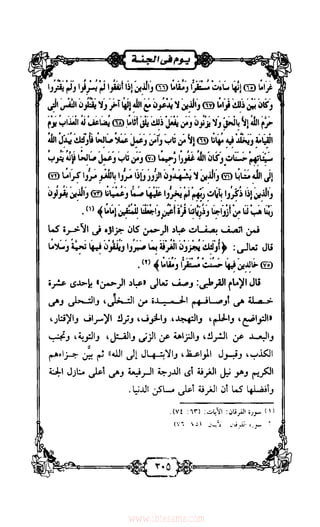 يوم في الجنة
غرامًا ﴿٦٥﴾ إنها ساءت مستقرًا ومقامًا ﴿٦٦﴾ والذين إذا أنفقوا لم يسرفوا ولم يقتروا
وكان بين ذلك قوامًا ﴿٦٧﴾ والذين لا يدعون مع الله إلهًا آخر ولا يقتلون النفس التي
حرم الله إلا بالحق ولا يزنون ومن يفعل ذلك يلق أثامًا ﴿٦٨﴾ يضاعف له العذاب يوم
القيامة ويخلد فيه مهانًا ﴿٦٩﴾ إلا من تاب وآمن وعمل عملًا صالحًا فأولئك يبدل الله
سيئاتهم حسنات وكان الله غفورًا رحيمًا ﴿٧٠﴾ ومن تاب وعمل صالحًا فإنه يتوب
إلى الله متابًا ﴿٧١﴾ والذين لا يشهدون الزور وإذا مروا باللغو مروا كرامًا ﴿٧٢﴾
والذين إذا ذكروا بآيات ربهم لم يخروا عليها صمًا وعميانًا ﴿٧٣﴾ والذين يقولون
ربنا هب لنا من أزواجنا وذرياتنا قرة أعين واجعلنا للمتقين إمامًا ﴾ (١) .
فمن اتصف بصفات عباد الرحمن كان جزاؤه في الآخرة كما
قال تعالى: ﴿ أولئك يجزون الغرفة بما صبروا ويلقون فيها تحية وسلامًا
﴿٧٥﴾ خالدين فيها حسنت مستقرًا ومقامًا ﴾ (٢) .
قال الإمام القرطبي: وصف تعالى «عباد الرحمن» بإحدى عشرة
خصلة هي أوصافهم الحميدة من التخلي، والتحلي وهي
«التواضع، والحلم، والتهجد، والخوف، وترك الإسراف والإقتار،
والبعد عن الشرك، والنزاهة عن الزنى والقتل، والتوبة، وتجنب
الكذب، وقبول المواعظ، والابتهال إلى الله» ثم بيَّن جزاءهم
الكريم وهو نيل الغرفة أي الدرجة الرفيعة وهي أعلى منازل الجنة
وأفضلها كما أن الغرفة أعلى مساكن الدنيا.
(١) سورة الفرقان: الآيات: (٦٣: ٧٤).
سورة الفرقان
٣٠٥